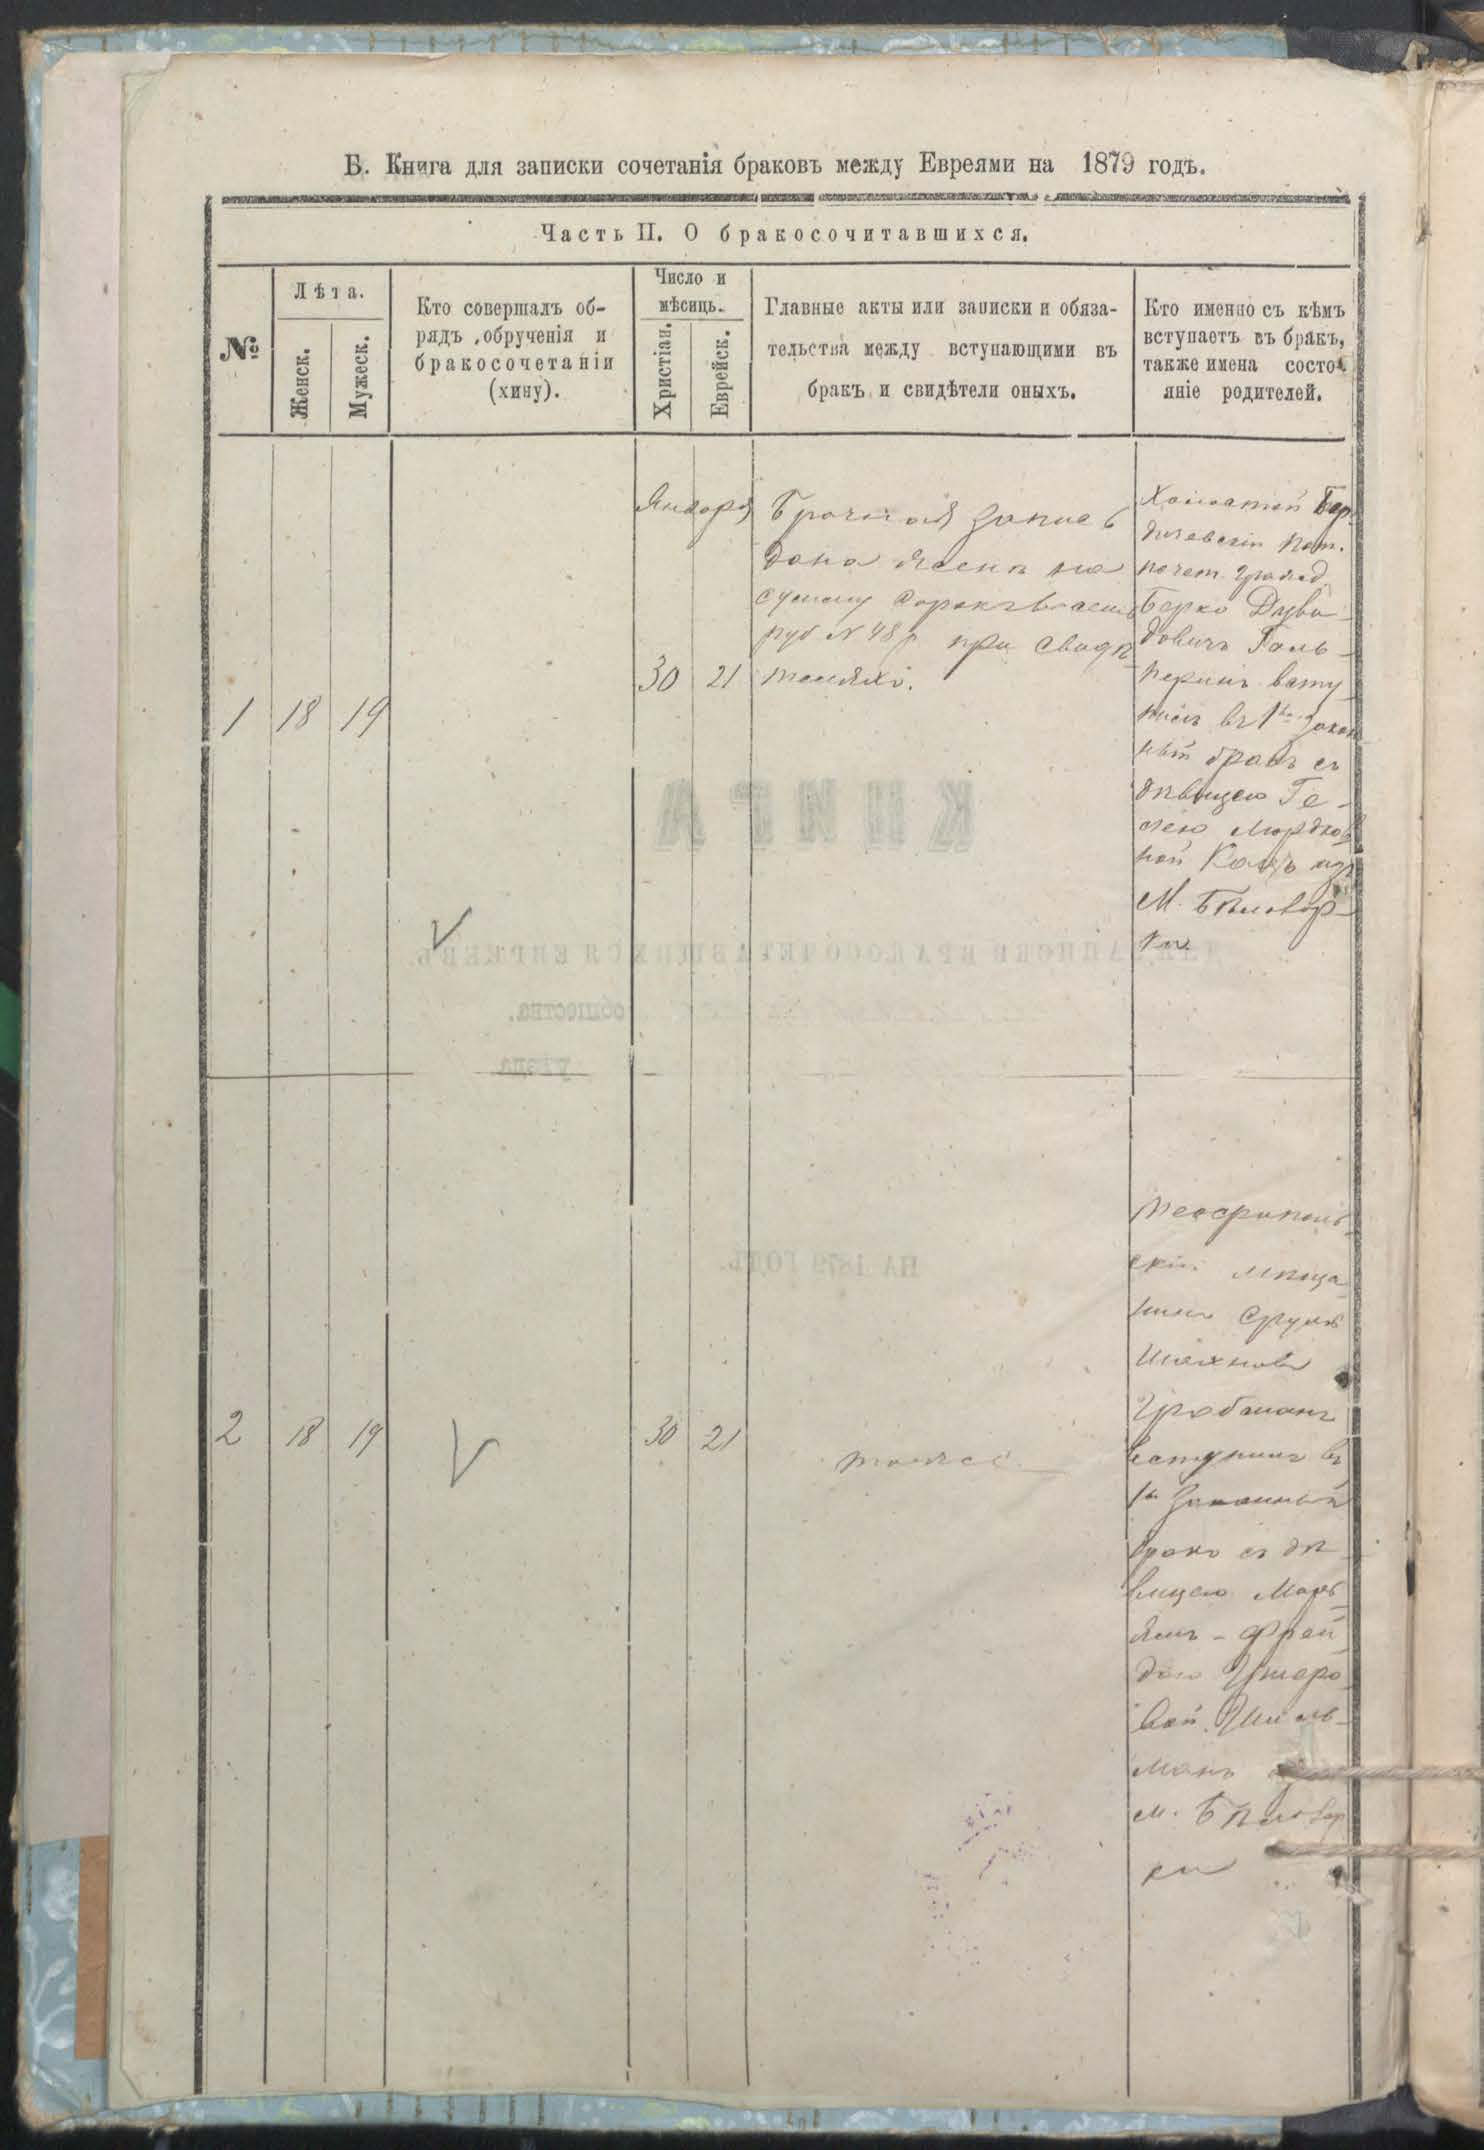 Б. Книга для записки сочетанія браковъ между Евреями на 1879 годъ.
Часть II. О бракосочитавшихся.
№
Лѣта.
Женск.
Мужеск.
Кто совершалъ об-
рядъ обрученія и
бракосочетаніи
(хину).
Число и
мѣсяць.
Христіан.
Еврейск.
Главные акты или записки и обяза-
тельства между вступающими въ
бракъ и свидѣтели оныхъ.
Кто именно съ кѣмъ
вступаетъ въ бракъ,
также имена состо-
яніе родителей.
1
18
19
Января
30
21
Брачная запись
дана
сумму
руб № 48 р при свидѣ
теляхъ.
Бер
дичевскій пот.
почет. гражд.
Берко Дуви-
довичъ Галь-
перинъ всту-
пилъ въ 1й закон
ный бракъ съ
дѣвицею Ге-
нею Мордков
ной Кацъ изъ
М. Бѣлозор-
ки
2
18
19
30
21
тоже
Теофиполь-
скій мѣща-
нинъ Сруль
Шахнов
Гройсман
вступилъ въ
1й законный
бракъ съ дѣ-
вицею Марь-
ямъ-Фрей-
дою
вой Шиль-
манъ
м. Бѣлозор
ки
КНИГА
ДЛЯ ЗАПИСКИ БРАКОСОЧЕТАВШИХСЯ ЕВРЕЕВЪ
общества.
уѣзда
НА 1879 ГОДЪ.